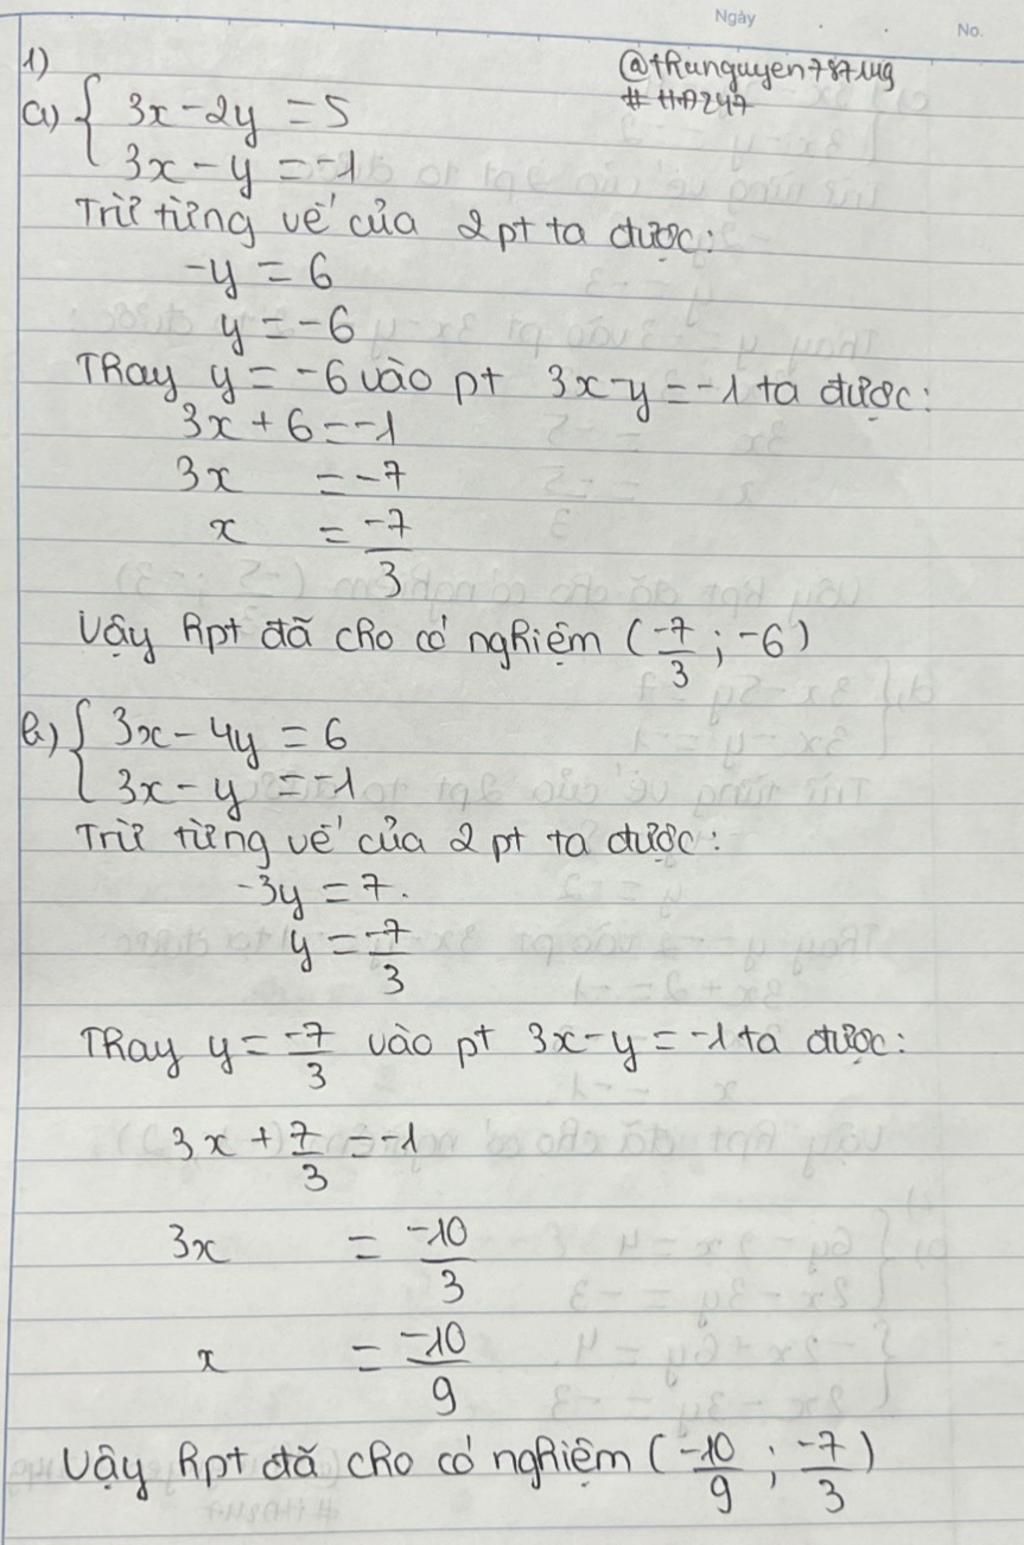 Ngày
No.
@thunguyen787149
#HĐ247
1)
a) { 3x - 2y = 5
3x - y = -1
Trừ từng vế của 2 pt ta được:
-y = 6
y = -6
Thay y = -6 vào pt 3x - y = -1 ta được:
3x + 6 = -1
3x = -7
x = -7/3
Vậy hpt đã cho có nghiệm (-7/3 ; -6)
b) { 3x - 4y = 6
3x - y = -1
Trừ từng vế của 2 pt ta được:
-3y = 7.
y = -7/3
Thay y = -7/3 vào pt 3x - y = -1 ta được:
3x + 7/3 = -1
3x = -10/3
x = -10/9
Vậy hpt đã cho có nghiệm (-10/9 ; -7/3)